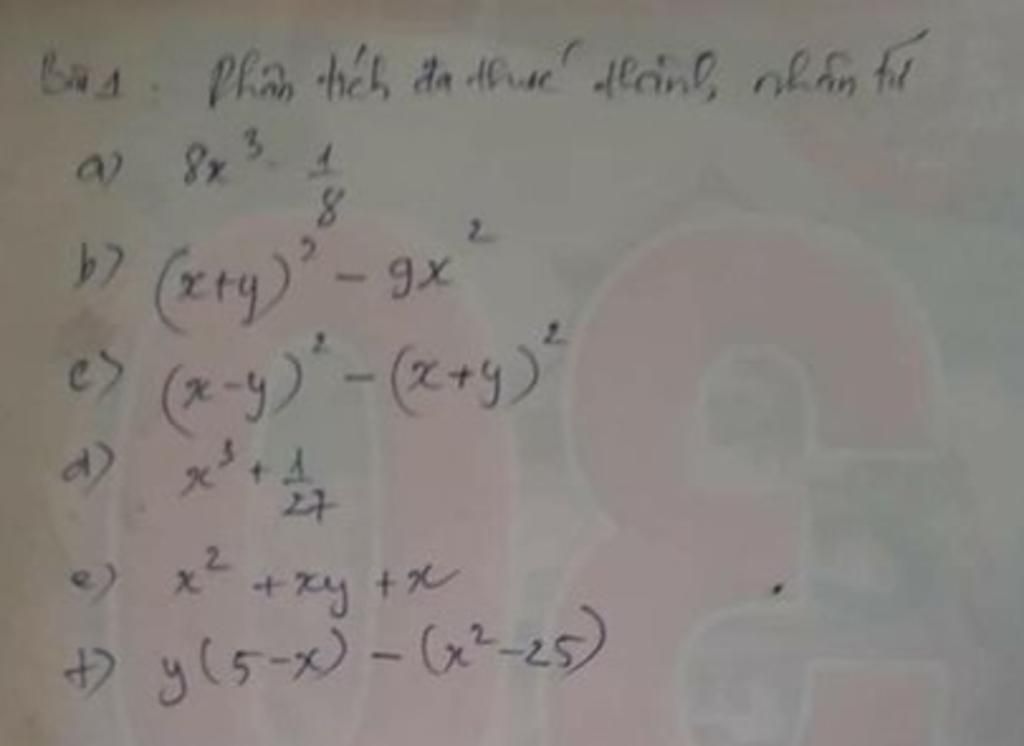 Bài 1. Phân tích đa thức thành nhân tử
a) 8x³ - 1/8
b) (x+y)² - 9x²
c) (x-y)² - (x+y)²
d) x³ + 1/27
e) x² + xy + x
f) y(5-x) - (x²-25)